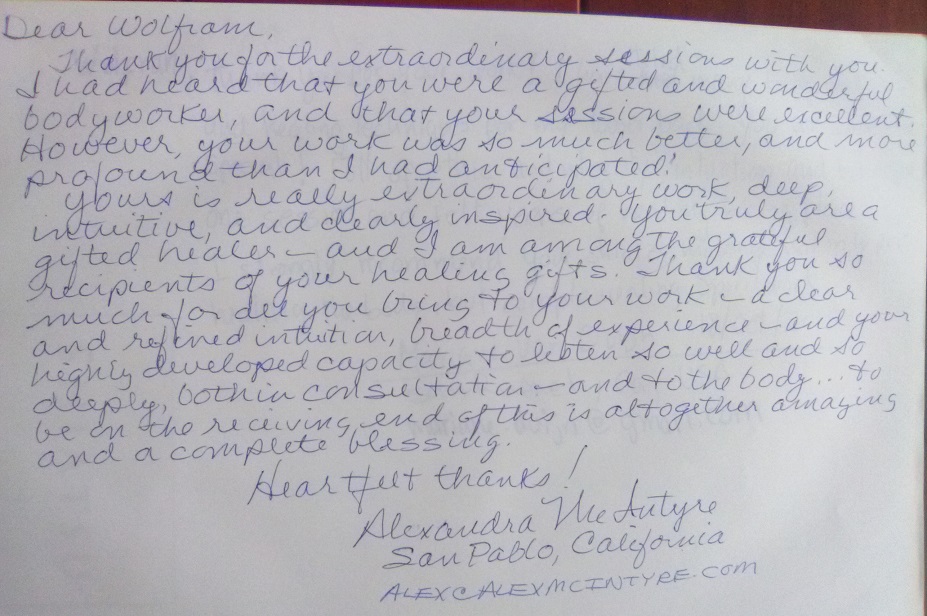 Dear Wolfram,
Thank you for the extraordinary sessions with you.
I had heard that you were a gifted and wonderful
bodyworker, and that your sessions were excellent.
However, your work was so much better, and more
profound than I had anticipated!
Yours is really extraordinary work, deep,
intuitive, and clearly inspired. You truly are a
gifted healer – and I am among the grateful
recipients of your healing gifts. Thank you so
much for all you bring to your work – a clear
and refined intuition, breadth of experience – and your
highly developed capacity to listen so well and so
deeply, both in consultation – and to the body... to
be on the receiving end of this is altogether amazing
and a complete blessing.
Heartfelt thanks!
Alexandra McIntyre
San Pablo, California
ALEX@ALEXMCINTYRE.COM